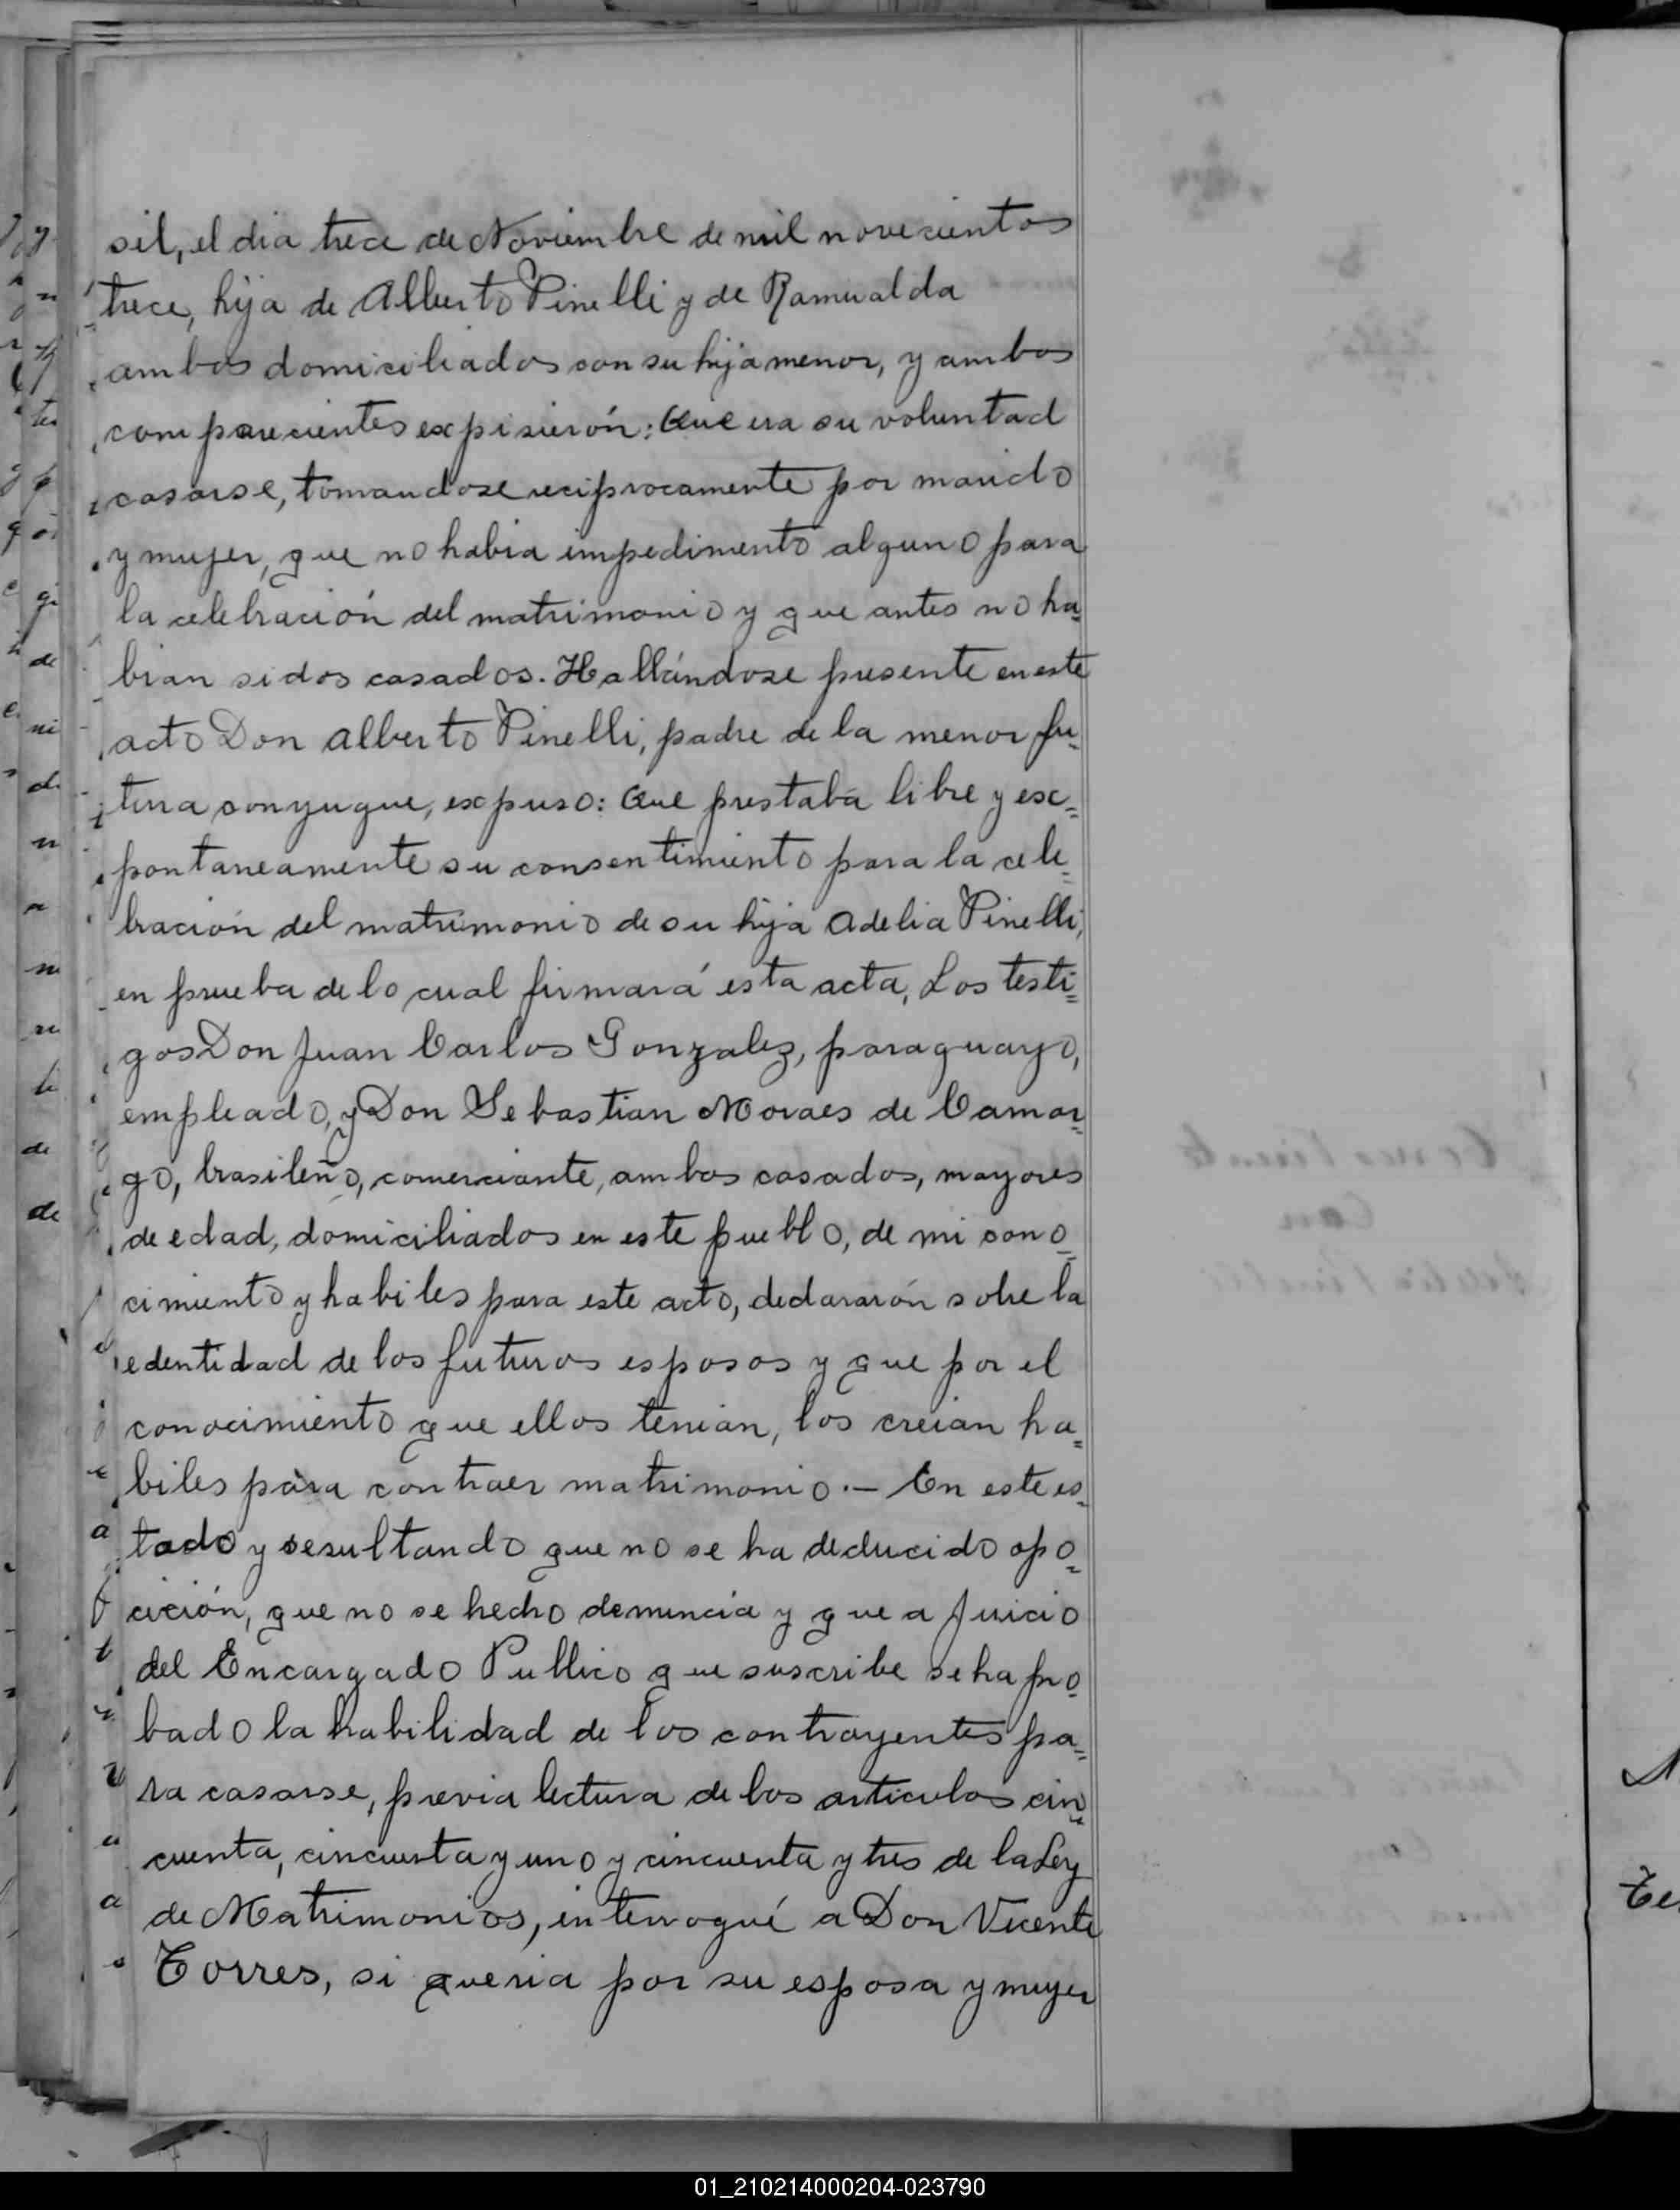 sil, el dia trece de Noviembre de mil novecientos
trece, hija de Alberto Pinelli y de Ramualda
ambos domiciliados con su hija menor, y ambos
comparecientes expisierón: Que era su voluntad
casarse, tomandose reciprocamente por marido
y mujer, que no habia impedimento alguno para
la celebración del matrimonio y que antes no ha=
bian sidos casados. Hallándose presente en este
acto Don Alberto Pinelli, padre de la menor fu=
tura conyugue, expuso: Que prestaba libre y exc=
pontaneamente su consentimiento para la cele=
bración del matrimonio de su hija Adelia Pinelli,
en prueba de lo cual firmará esta acta, Los testi=
gos Don Juan Carlos Gonzalez, paraguayo,
empleado, y Don Sebastian Moraes de Camar=
go, brasileño, comerciante, ambos casados, mayores
de edad, domiciliados en este pueblo, de mi cono=
cimiento y habiles para este acto, declararón sobre la
edentidad de los futuros esposos y que por el
conocimiento que ellos tenian, los creian ha=
biles para contraer matrimonio.— En este es=
tado y resultando que no se ha deducido opo=
cición, que no se hecho denuncia y que a Juicio
del Encargado Publico que suscribe se ha pro=
bado la habilidad de los contrayentes pa=
ra casarse, previa lectura de los articulos cin=
cuenta, cincuenta y uno y cincuenta y tres de la Ley
de Matrimonios, interrogué a Don Vicente
Torres, si queria por su esposa y mujer
01_210214000204-023790